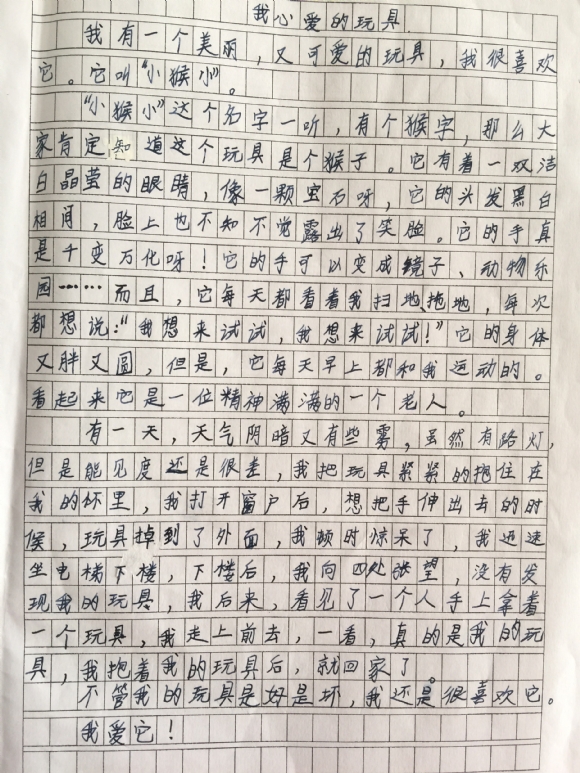 我心爱的玩具
我有一个美丽，又可爱的玩具，我很喜欢
它。它叫“小猴小”。
“小猴小”这个名字一听，有个猴字，那么大
家肯定知道这个玩具是个猴子。它有着一双洁
白晶莹的眼睛，像一颗宝石呀，它的头发黑白
相间，脸上也不知不觉露出了笑脸。它的手真
是千变万化呀！它的手可以变成镜子、动物乐
园……而且，它每天都看着我扫地、拖地，每次
都想说：“我想来试试，我想来试试！”它的身体
又胖又圆，但是，它每天早上都和我运动的。
看起来它是一位精神满满的一个老人。
有一天，天气阴暗又有些雾，虽然有路灯，
但是能见度还是很差，我把玩具紧紧的抱住在
我的怀里，我打开窗户后，想把手伸出去的时
候，玩具掉到了外面，我顿时惊呆了，我迅速
坐电梯下楼，下楼后，我向四处张望，没有发
现我的玩具，我后来，看见了一个人手上拿着
一个玩具，我走上前去，一看，真的是我的玩
具，我抱着我的玩具后，就回家了。
不管我的玩具是好是坏，我还是很喜欢它。
我爱它！